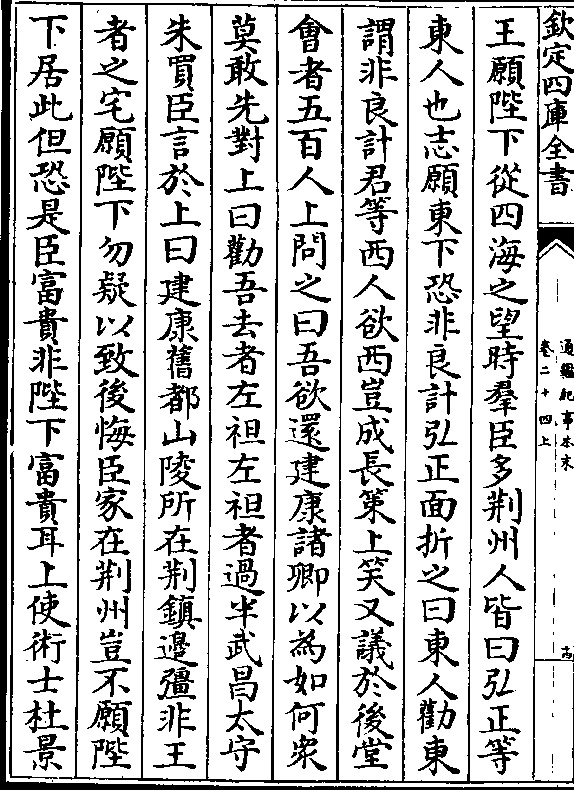 欽定四庫全書
通鑑紀事本末
卷二十四上
王願陛下從四海之望時羣臣多荆州人皆曰弘正等
東人也志願東下恐非良計弘正面折之曰東人勸東
謂非良計君等西人欲西豈成長策上笑又議於後堂
會者五百人上問之曰吾欲還建康諸卿以為如何衆
莫敢先對上曰勸吾去者左袒左袒者過半武昌太守
朱買臣言於上曰建康舊都山陵所在荆鎮邊彊非王
者之宅願陛下勿疑以致後悔臣家在荆州豈不願陛
下居此但恐是臣富貴非陛下富貴耳上使術士杜景